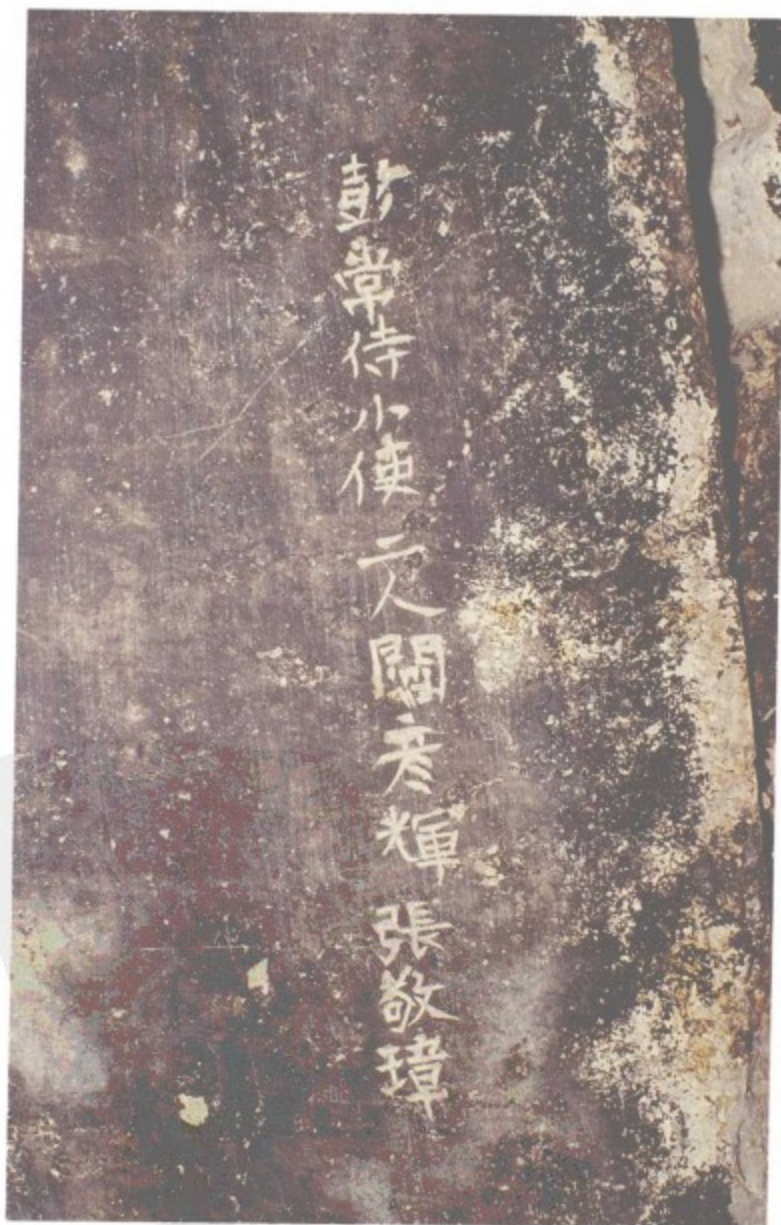 彭常侍小使二人關彦輝張敬瑋